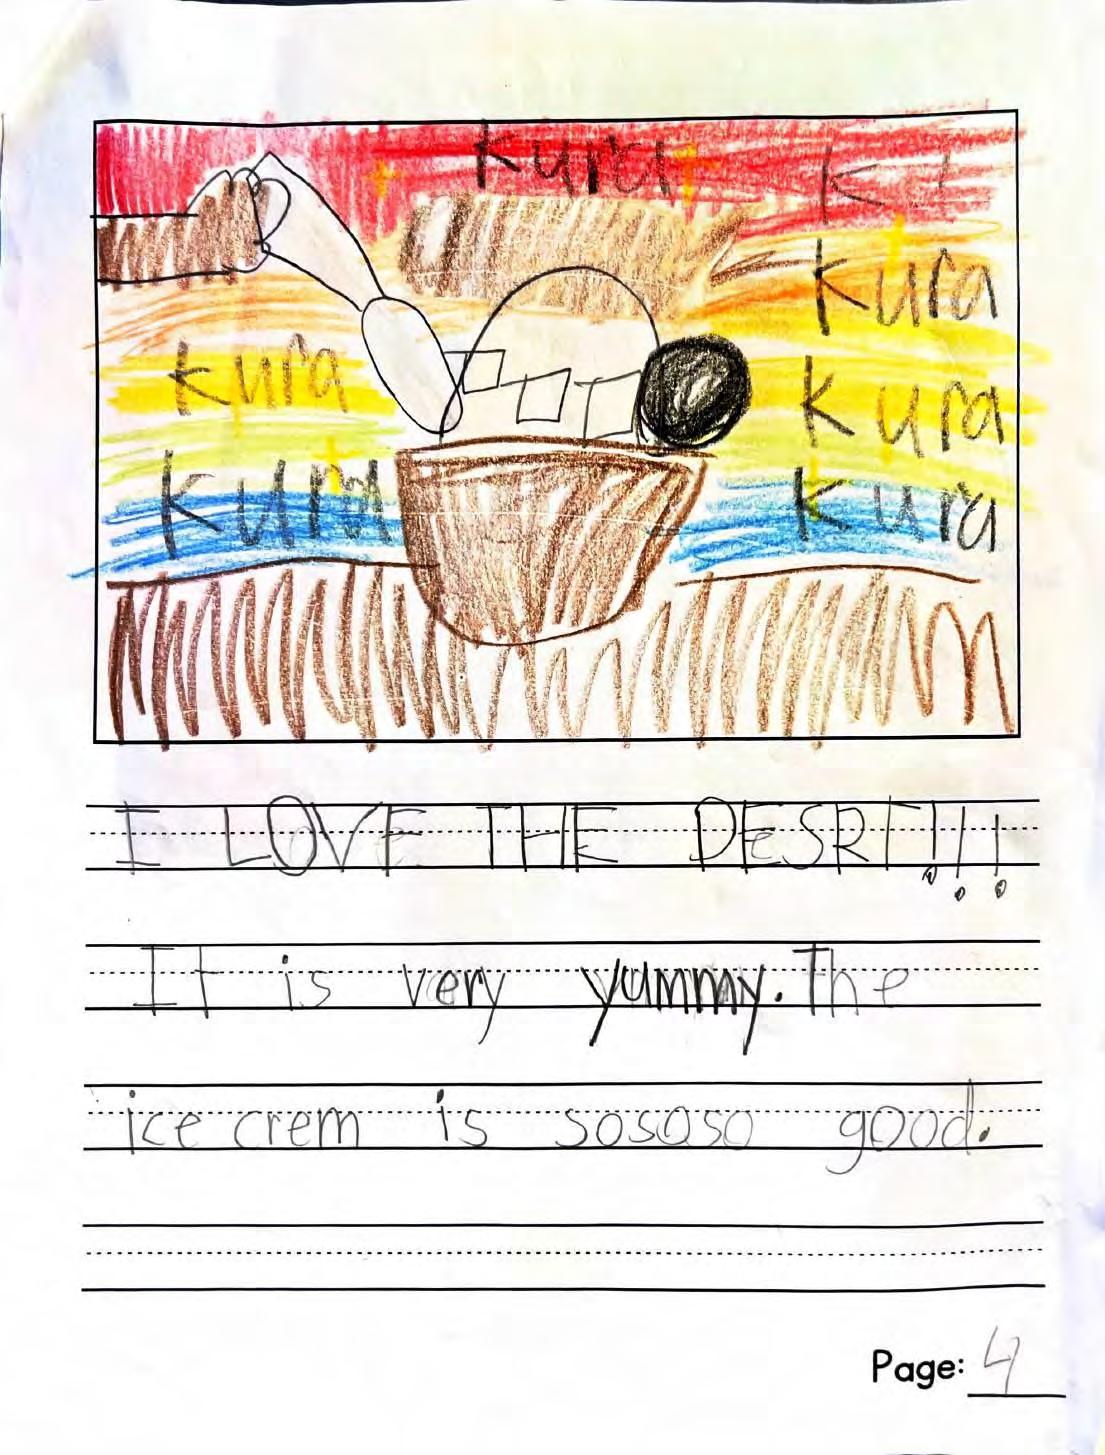 kura
K
kura
kura
kura
kura
kura
I LOVE THE DESRT!!!
It is very yummy. The
ice crem is sososo good.
Page: 4